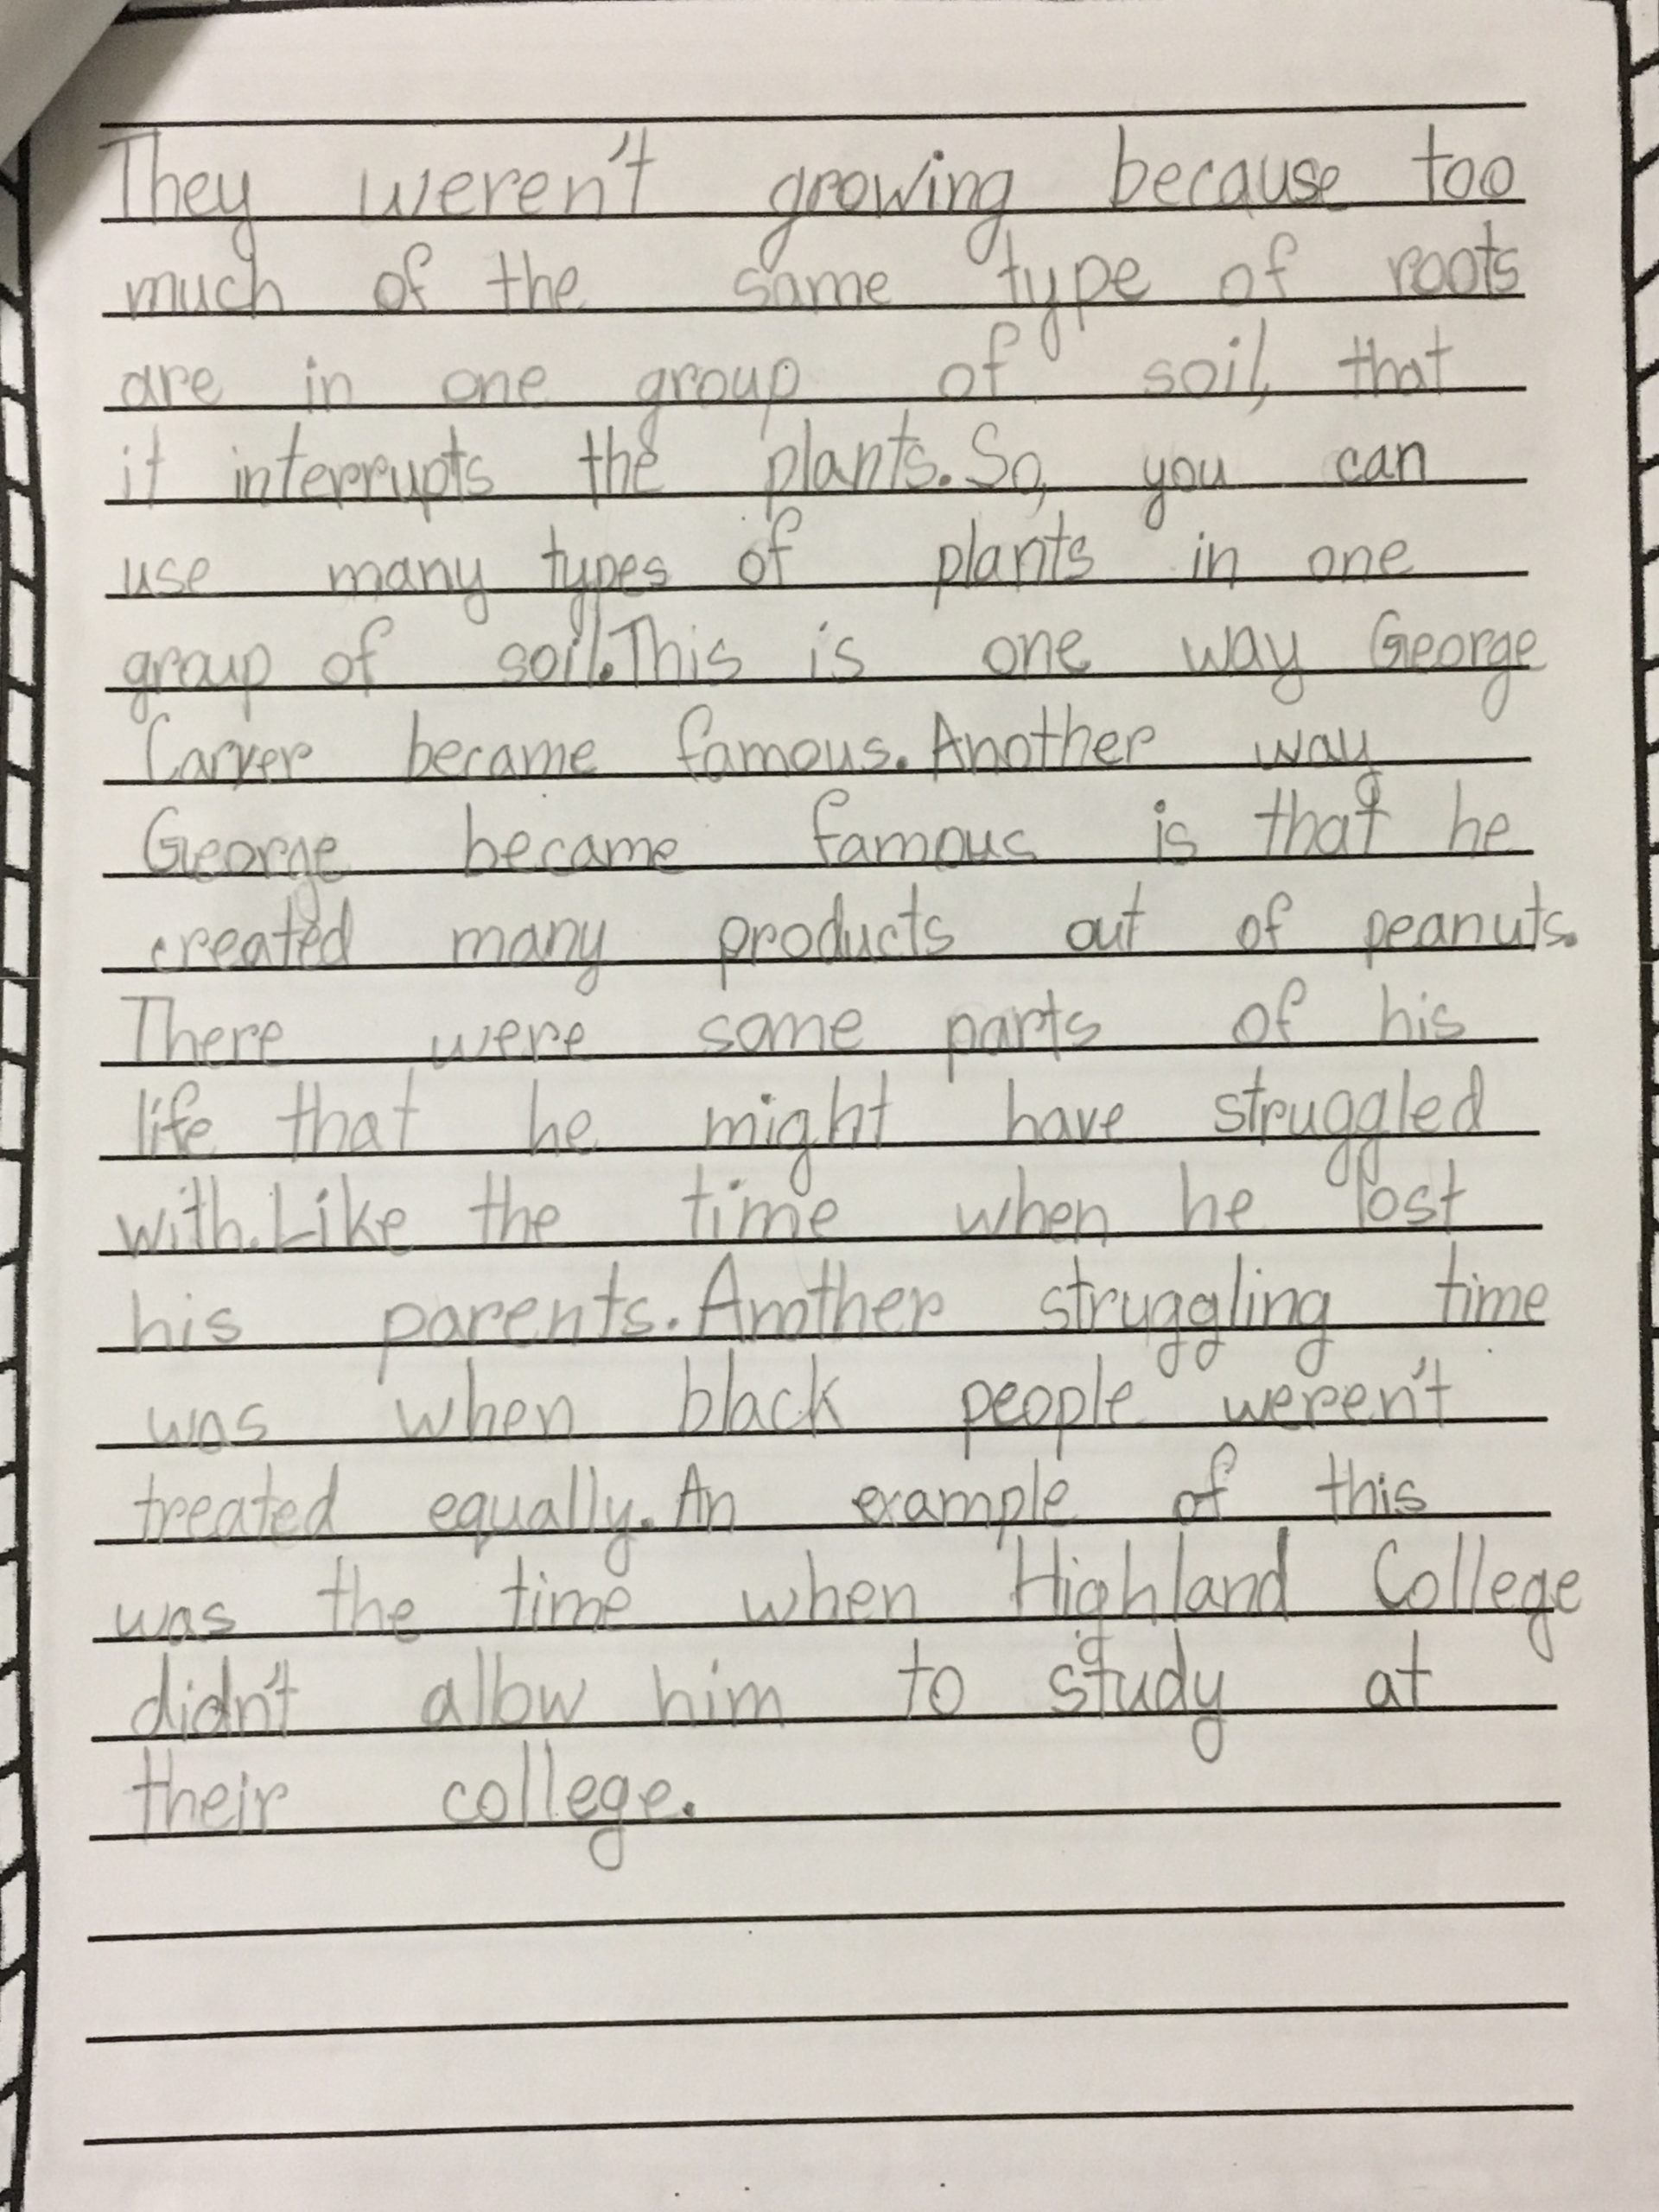 They weren't growing because too
much of the same type of roots
are in one group of soil, that
it interrupts the plants. So, you can
use many types of plants in one
group of soil. This is one way George
Carver became famous. Another way
George became famous is that he
created many products out of peanuts.
There were some parts of his
life that he might have struggled
with. Like the time when he lost
his parents. Another struggling time
was when black people weren't
treated equally. An example of this
was the time when Highland College
didn't allow him to study at
their college.